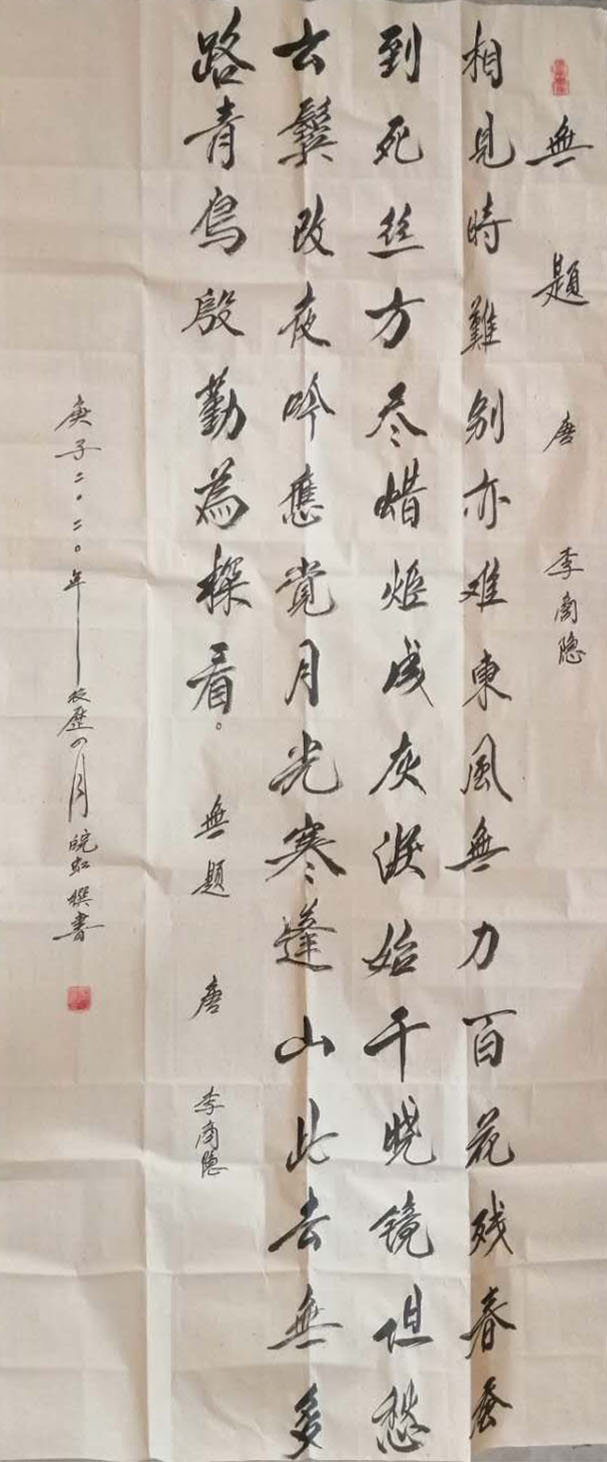 無題 唐 李商隐
相見時難别亦难東風無力百花残春蚕
到死丝方尽蜡炬成灰淚始干晓镜但愁
云鬓改夜吟應覚月光寒蓬山此去無多
路青鳥殷勤為探看。 無題 唐 李商隐
庚子二·二〇年 农歷四月 皖虹 撰書